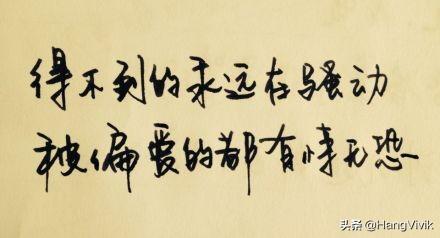 得不到的永远在骚动
被偏爱的都有恃无恐
头条 @HangVivik